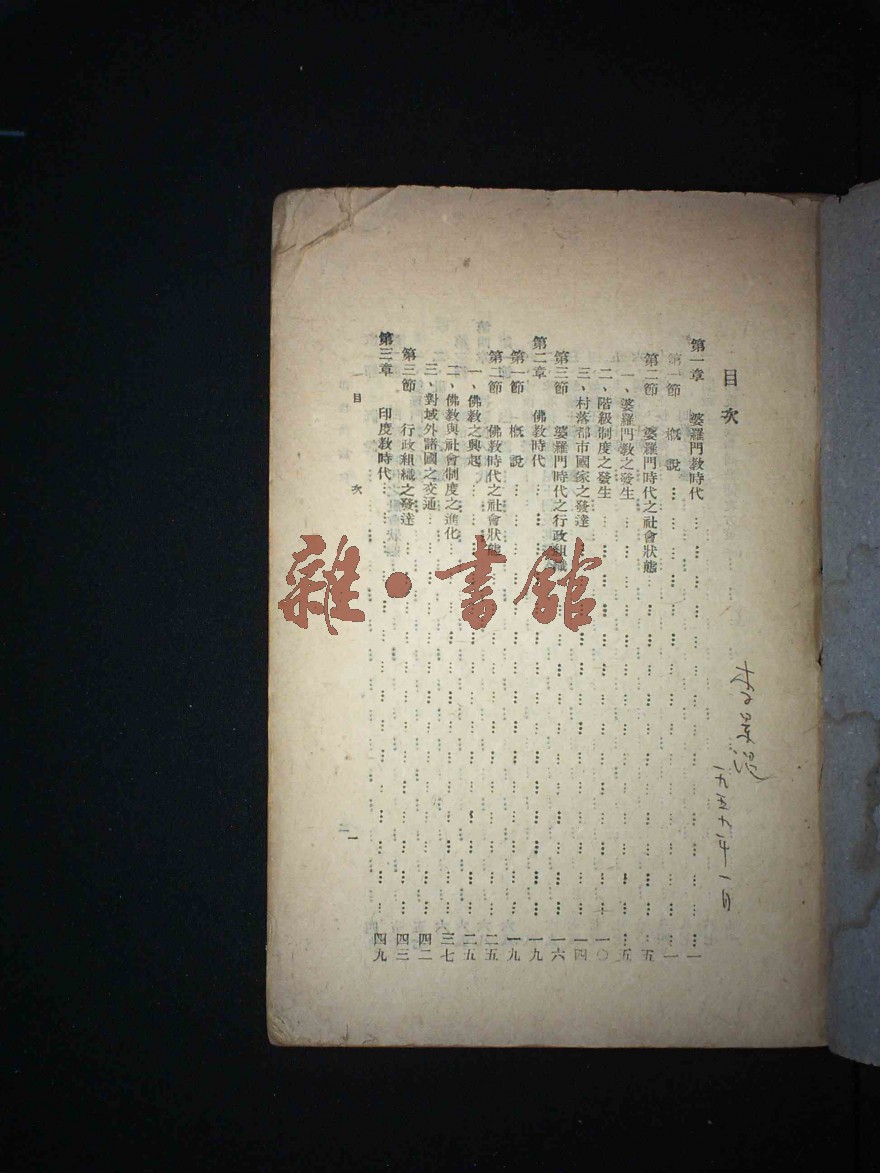 目次
第一章 婆羅門教時代…………一
第一節 概說…………一
第二節 婆羅門時代之社會狀態…………五
一、婆羅門教之發生…………五
二、階級制度之發生…………一〇
三、村落都市國家之發達…………一四
第三節 婆羅門時代之行政組織…………一六
第二章 佛教時代…………一九
第一節 概說…………一九
第二節 佛教時代之社會狀態…………二五
一、佛教之興起…………二五
二、佛教與社會制度之進化…………三七
三、對域外諸國之交通…………四二
第三節 行政組織之發達…………四三
第三章 印度教時代…………四九
目次
一
一九五六年一月
雜·書館